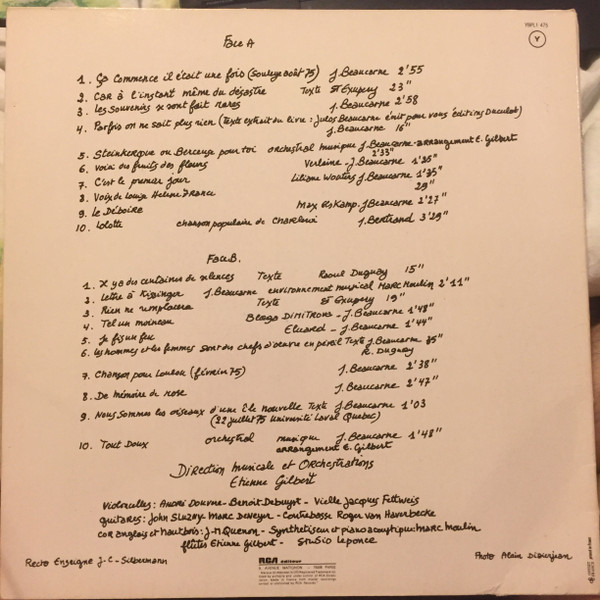 YBPL1 475
Y
Face A
1. Ça commence il était une fois (Soulege août 75) J. Beaucarne 2'55
2. Car à l'instant même du désastre Texte St Exupery 23"
3. Les souvenirs x sont fait rares J. Beaucarne 2'58
4. Parfois on ne sait plus rien (texte extrait du livre: Julos Beaucarne écrit pour vous éditions Duculot)
J. Beaucarne 16"
5. Steinkerque ou Berceuse pour toi orchestral musique J. Beaucarne - arrangement E. Gilbert
2'33"
6. Voici des fruits des fleurs Verlaine - J. Beaucarne 1'25"
7. C'est le premier jour Liliane Wouters J. Beaucarne 1'35"
8. Voix de Louise Helene France 29"
9. Le Déboire Max Elskamp. J. Beaucarne 2'27"
10. Lolotte chanson populaire de Charleroi J. Bertrand 3'29"
Face B.
1. x ya des centaines de silences Texte Raoul Duguay 15"
2. Lettre à Kissinger J. Beaucarne environnement musical Marc Moulin 2'11"
3. Rien ne remplacera Texte St Exupery 19"
4. Tel un moineau Blaga DIMITROVA - J. Beaucarne 1'48"
5. Je fis un feu Eluard - J. Beaucarne 1'44"
6. Les hommes et les femmes sont des chefs d'œuvre en péril Texte J. Beaucarne 35"
R. Duguay
7. Chanson pour Loulou (février 75) J. Beaucarne 2'38"
8. De mémoire de rose J. Beaucarne 2'47"
9. Nous sommes les oiseaux d'une île nouvelle Texte J. Beaucarne 1'03
(22 juillet 75 Université Laval Quebec)
10. Tout Doux orchestral musique J. Beaucarne 1'48"
arrangement E. Gilbert
Direction musicale et Orchestrations
Etienne Gilbert
Violoncelles: André Douvne - Benoit Debuyst - Vielle Jacques Fettweis
guitares: John Sluzny Marc Deneyer - Contrebasse Roger van Haverbecke
cor anglais et hautbois: J-M Quenon - Synthetiseur et piano acoustique: Marc Moulin
flûtes Etienne Gilbert - Studio Leponce
Recto Enseigne J-C-Silbermann
Photo Alain Didierjean
RCA éditeur
9, AVENUE MATIGNON - 75008 PARIS